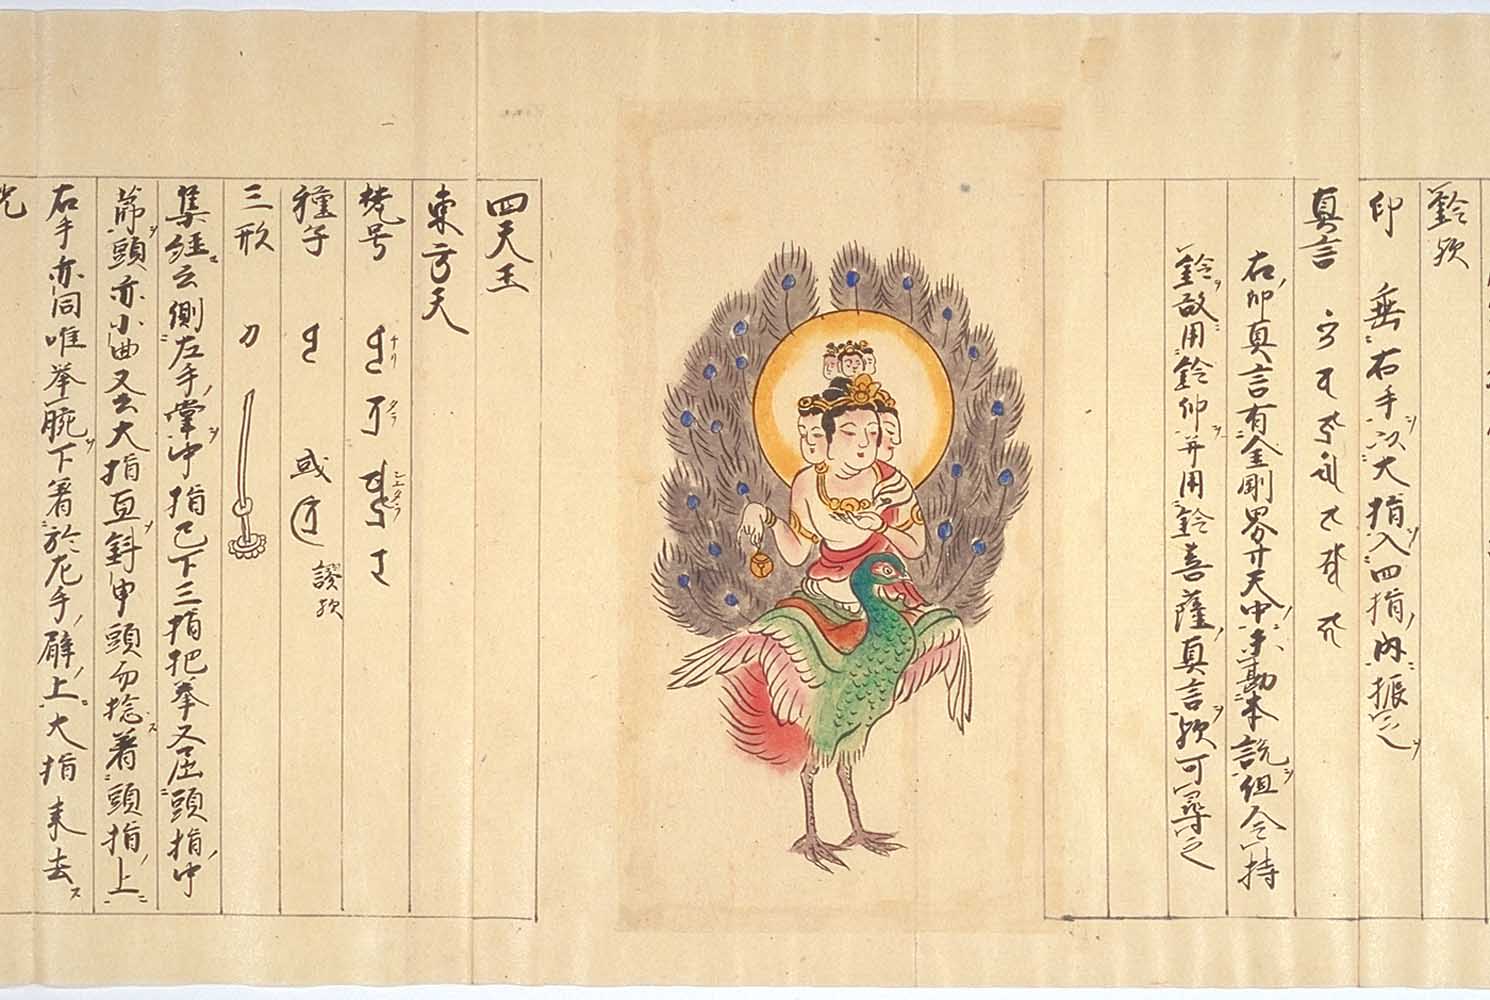 鈴欤
印 垂右手以大指入四指内振之
真言
右印真言有金剛界廿天中未勘本説但今持
鈴故用鈴印并用鈴菩薩真言欤可尋之
四天王
東方天
梵号
種子 或 謬欤
三形 刀
集経云側左手掌中指已下三指把拳又屈頭指中
節頭亦小曲又去大指直斜申頭勿捻著頭指上
右手亦同唯挙腕下著於左手臂上大指来去
呪